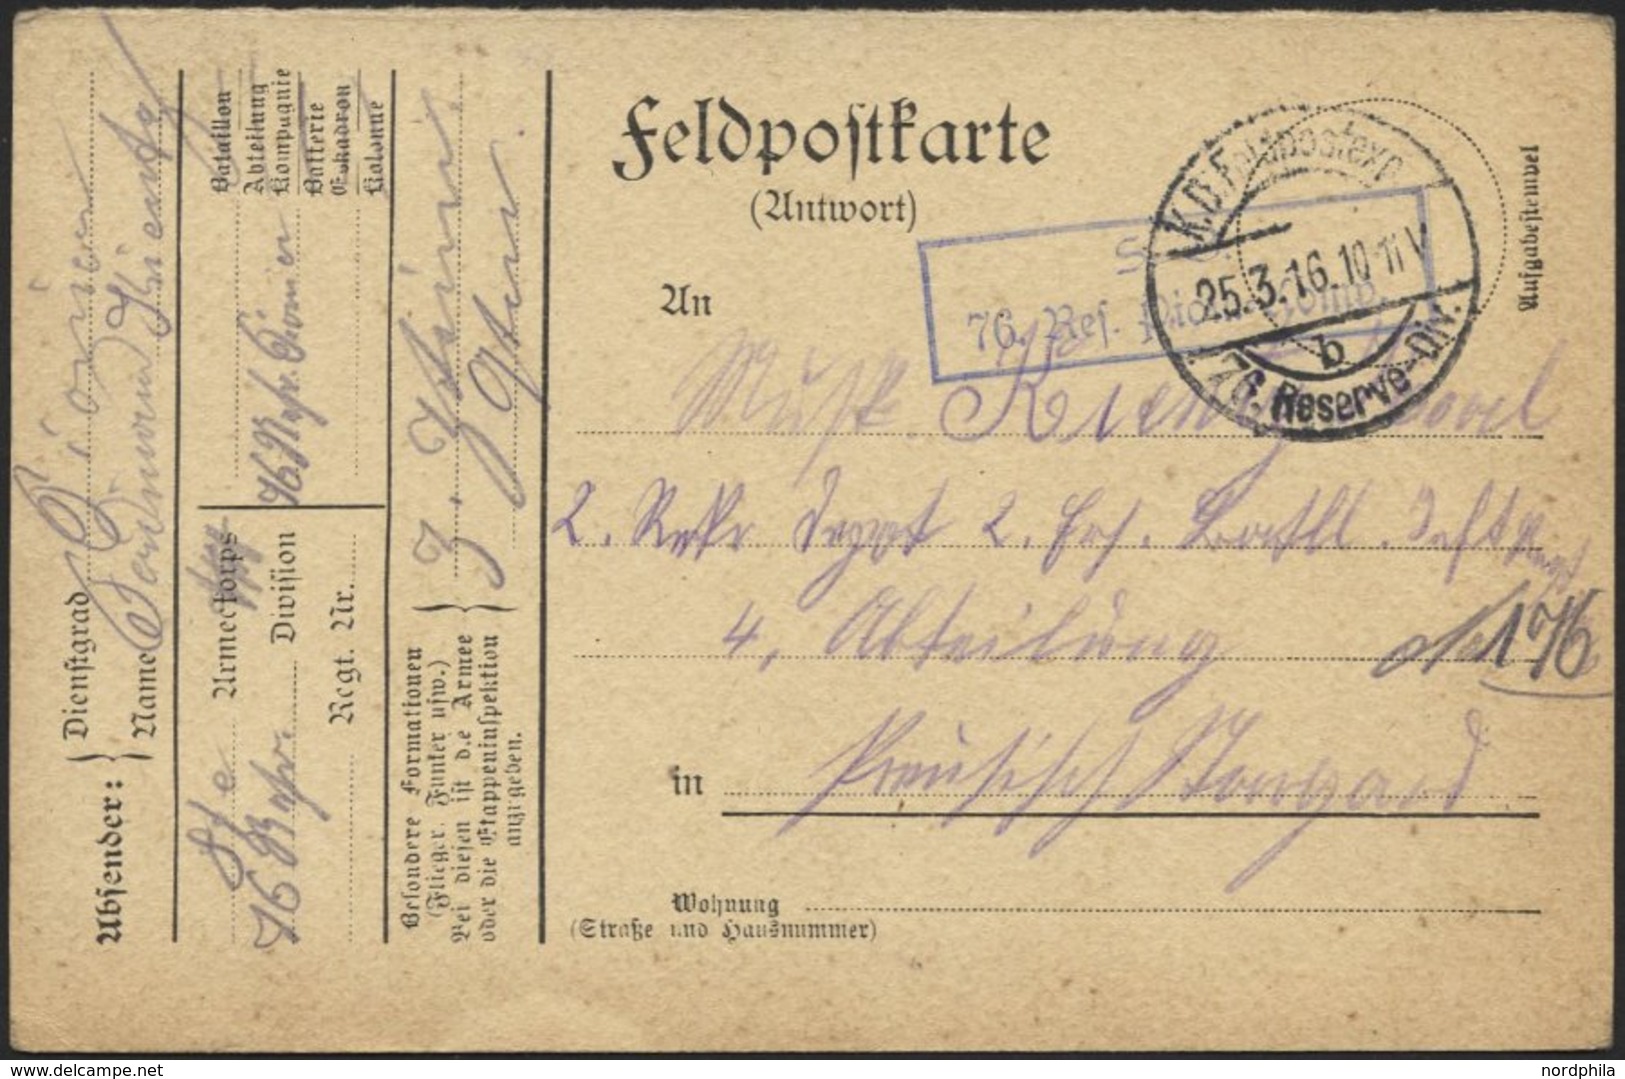 Feldpostkarte
(Antwort)
K.D. Feldpostexp.
25.3.16.10-11 V
b
76. Reserve-Div.
Aufgabestempel
S.
76. Res. Pion. Komp.
An
Musk.
2. Rekr Depot 2. Ers. Batll.
4. Abteilung No 176
in Preusisch Stargard
Wohnung
(Straße und Hausnummer)
Absender:
Dienstgrad Pionier
Name
Bataillon
Abteilung
Kompagnie
Batterie
Eskadron
Kolonne
76 Resr. Pionier
Armeekorps
76 Resr. Division
Regt. Nr.
Besondere Formationen
(Flieger, Funker usw.)
Bei diesen ist die Armee
oder die Etappeninspektion
anzugeben.